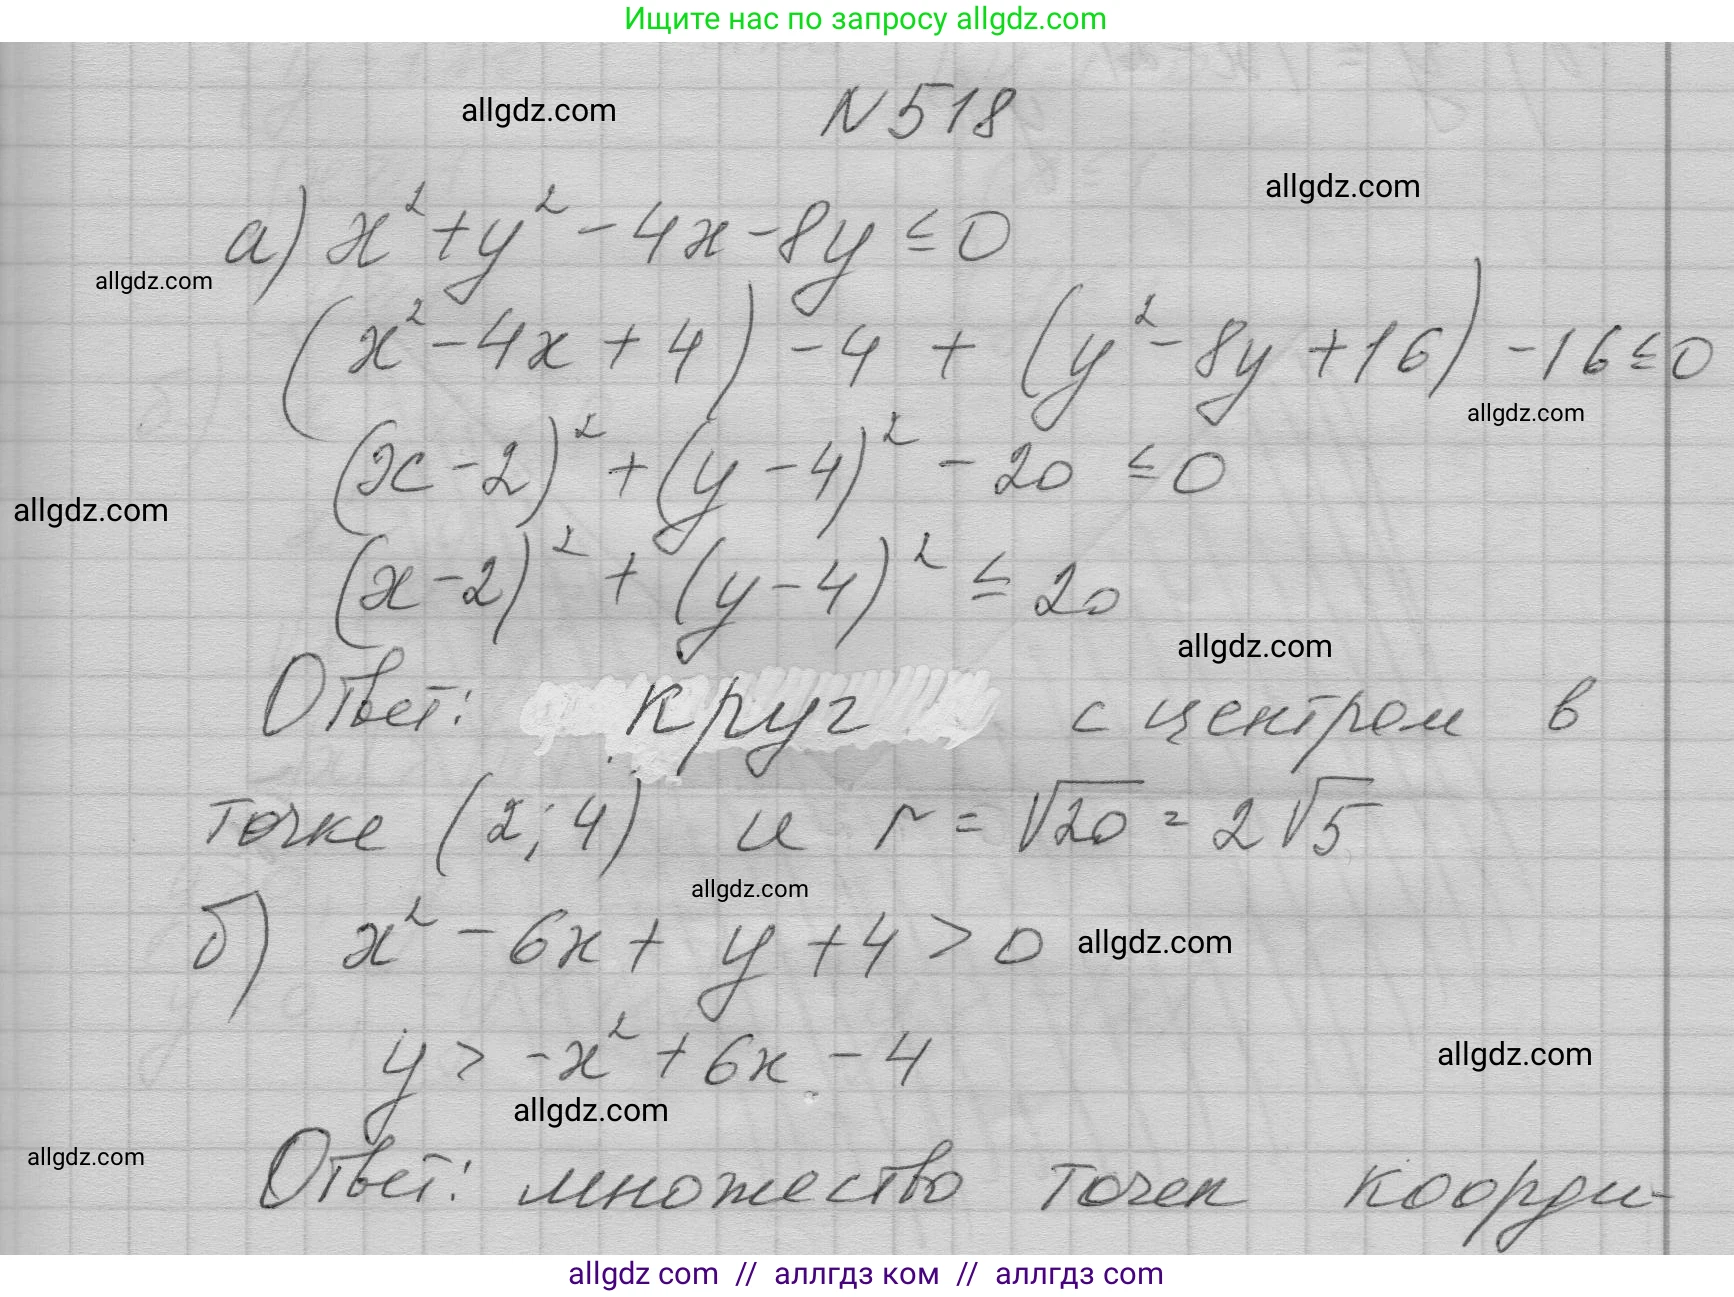 Ищите нас по запросу allgdz.com
allgdz.com
N 518
allgdz.com
а) x² + y² - 4x - 8y ≤ 0
allgdz.com
(x² - 4x + 4) - 4 + (y² - 8y + 16) - 16 ≤ 0
allgdz.com
(x - 2)² + (y - 4)² - 20 ≤ 0
allgdz.com
(x - 2)² + (y - 4)² ≤ 20
allgdz.com
Ответ: круг с центром в
точке (2; 4) и r = √20 = 2√5
allgdz.com
б) x² - 6x + y + 4 > 0
allgdz.com
y > -x² + 6x - 4
allgdz.com
allgdz.com
allgdz.com
Ответ: множество точек коорди-
allgdz com // аллгдз ком // аллгдз com